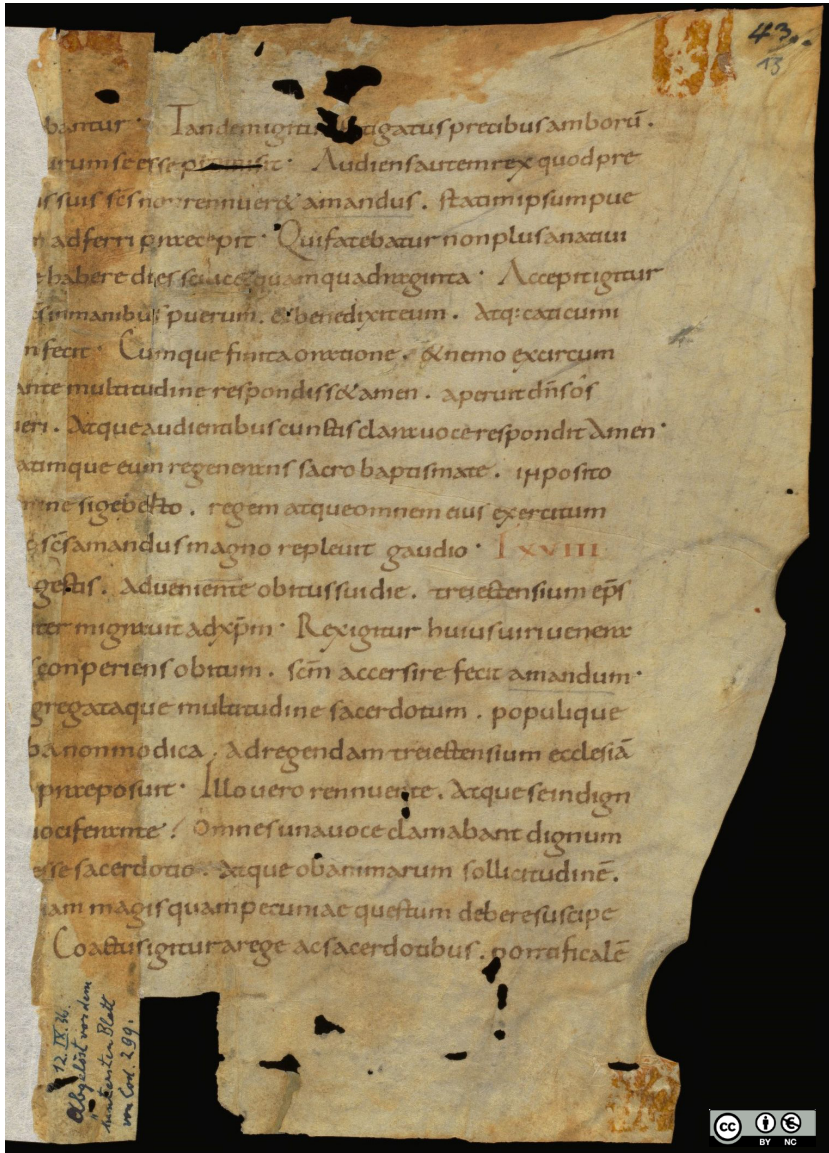 43.
13
bantur. Tandem igitur tigatus precibus amborū.
urum se esse promisit. Audiens autem rex quod pre
is suis scs non rennueret amandus. statim ipsum pue
adferri praecepit. Qui fatebatur non plus a natiui
habere dies quam quadraginta. Accepit igitur
in manibus puerum. & benedixit eum. Atq: caticumi
fecit. Cumque finita oratione. & nemo ex circum
ante multitudine respondiss& amen. aperuit dn̄s os
eri. Atque audientibus cunctis clara uoce respondit Amen.
atimque eum regenerans sacro baptismate. inposito
sigeberto. regem atque omnem eius exercitum
scs amandus magno repleuit gaudio. LXVIII
gestis. Adueniente obitus sui die. treiectensium ep̄s
ter migrauit ad xp̄m. Rex igitur huius uiri uenera
conperiens obitum. sc̄m accersire fecit amandum.
gregataque multitudine sacerdotum. populique
ba non modica. Ad regendam treiectensium ecclesiā
praeposuit. Illo uero rennuente. Atque se indign
uociferante. Omnes una uoce clamabant dignum
esse sacerdotio. Atque ob animarum sollicitudinē.
iam magis quam pecuniae questum debere suscipe
Coactus igitur a rege ac sacerdotibus. pontificalē
12. IX. 36.
Abgelöst von dem
hintersten Blatt
von Cod. 299.
cc BY NC